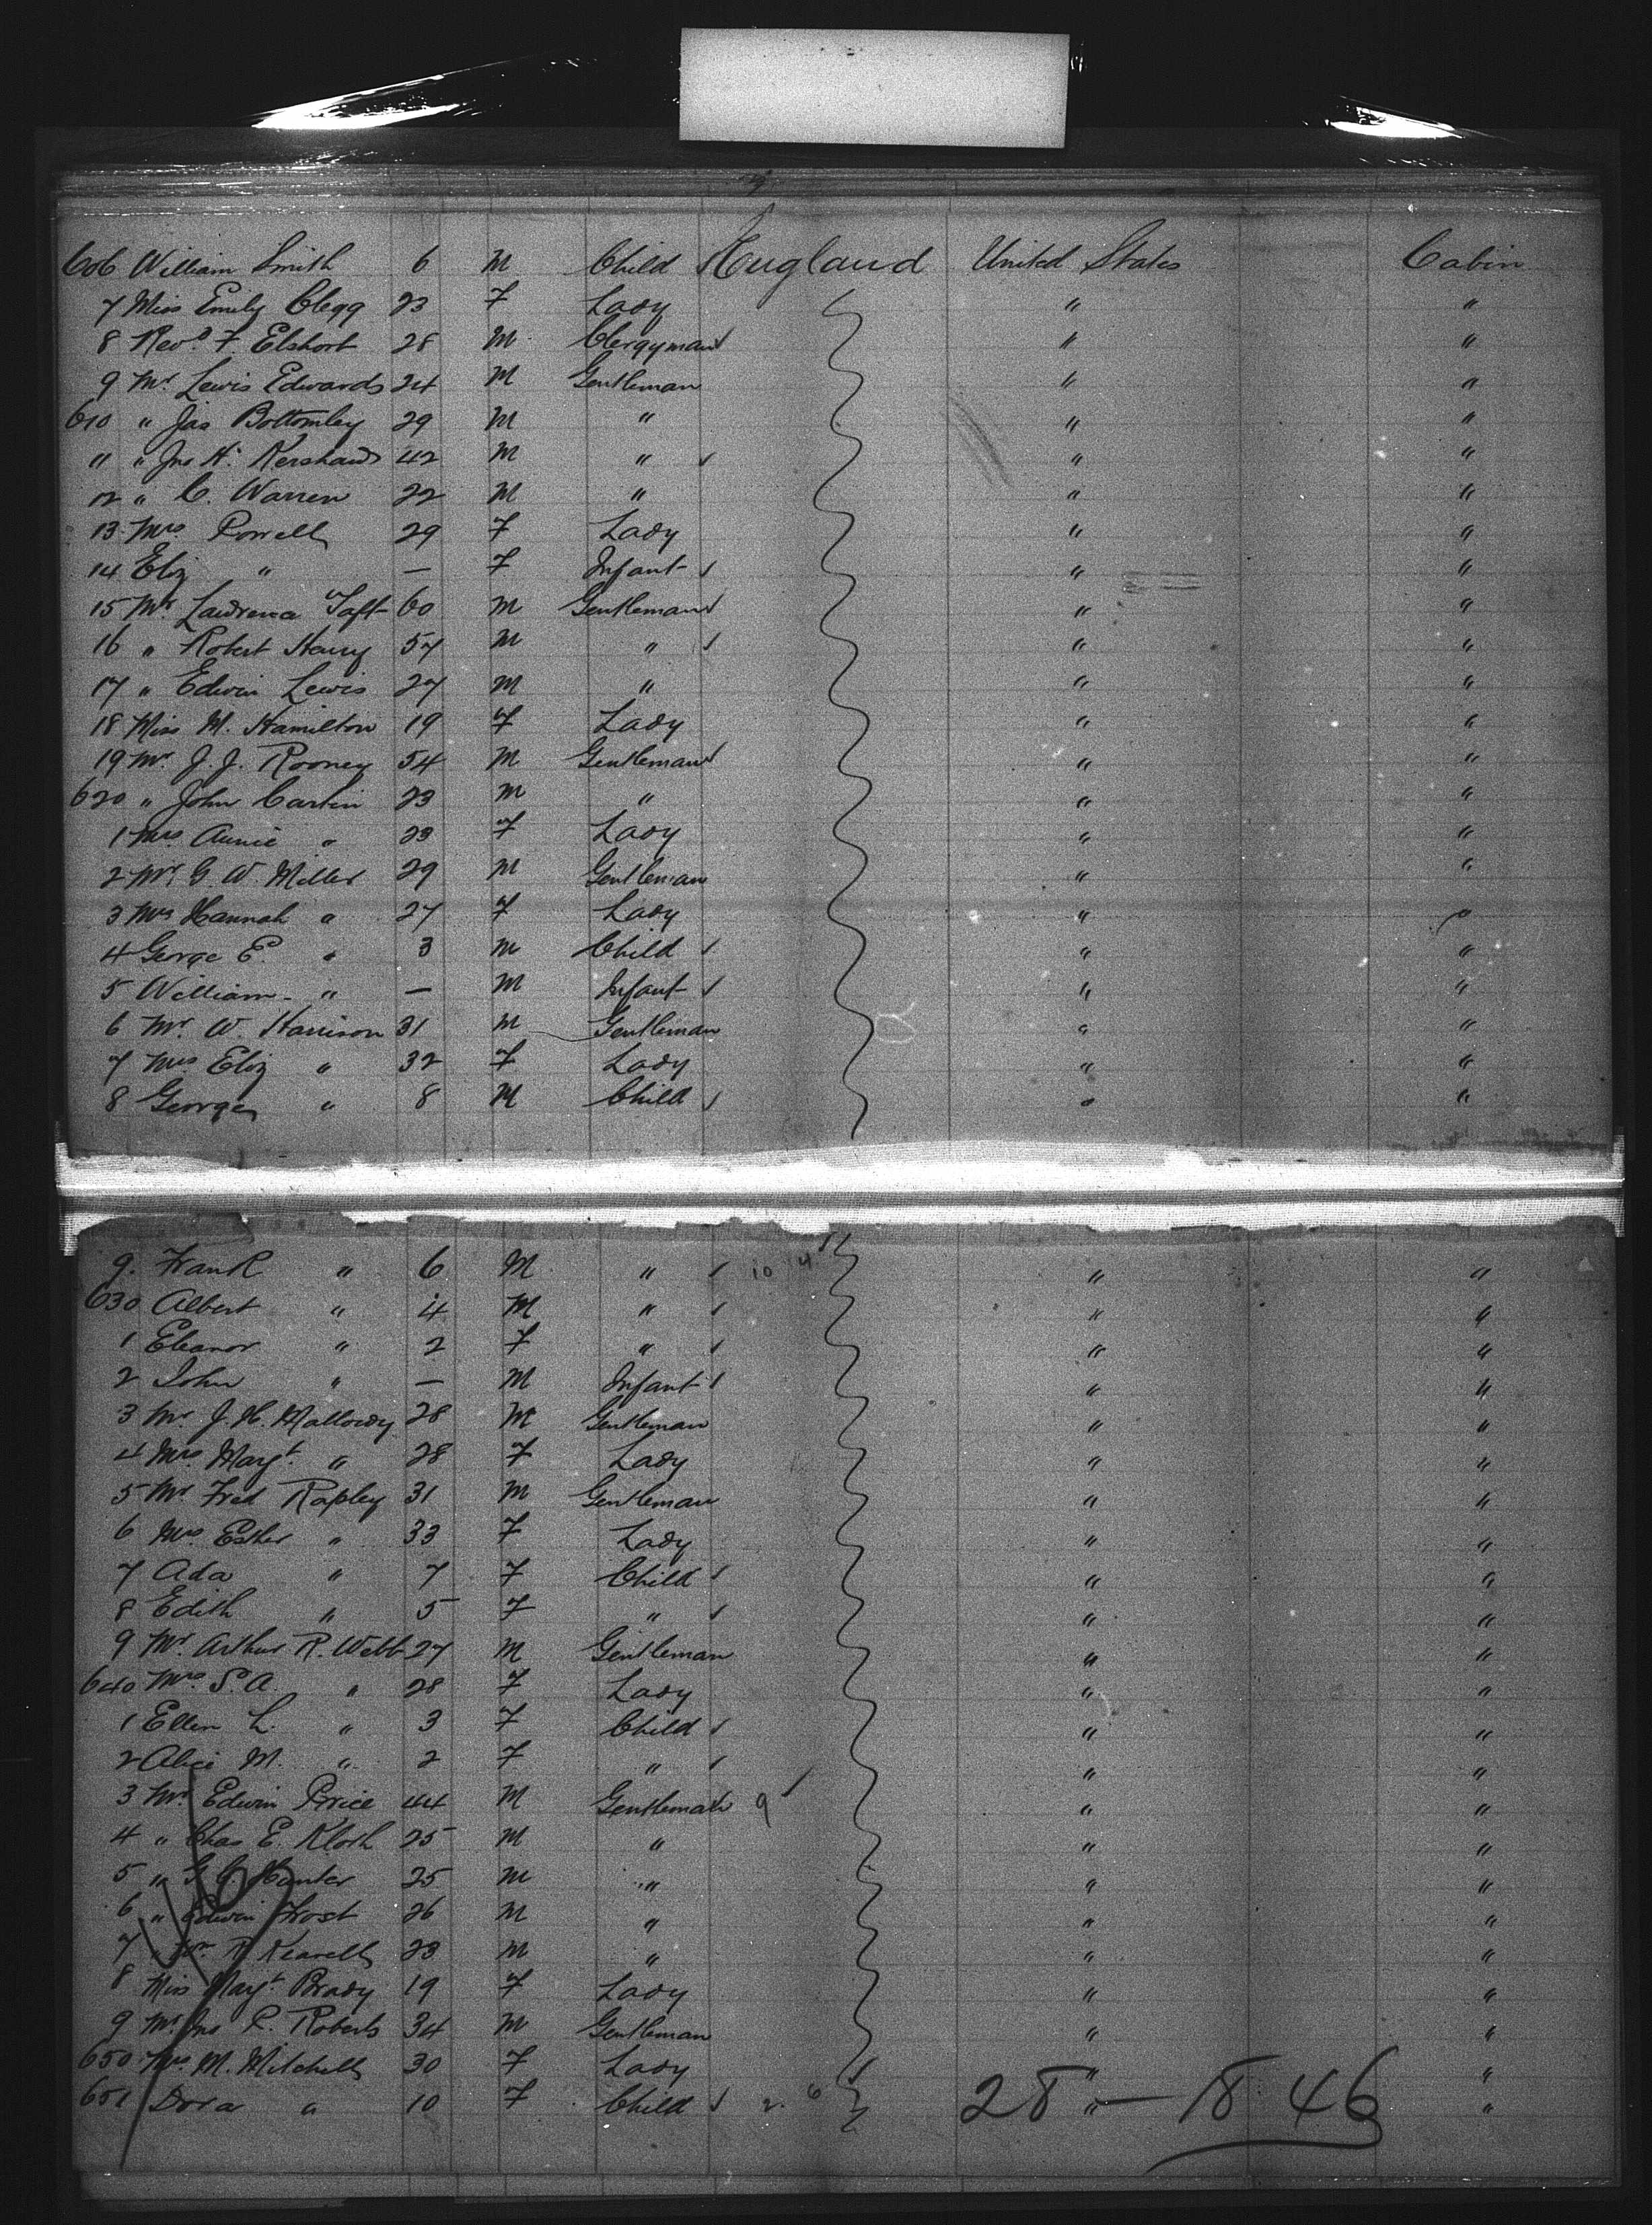 606 William Smith 6 M Child England United States Cabin
7 Miss Emily Clegg 23 F Lady " "
8 Revd. F. Elshort 28 M Clergyman " "
9 Mr Lewis Edwards 24 M Gentleman " "
610 " Jas Bottomley 29 M " " "
" " Jno H. Kershaw 42 M " " "
12 " C. Warren 22 M " " "
13 Mrs Powell 29 F Lady " "
14 Eliz " — F Infant " "
15 Mr Lawrence Taft 60 M Gentleman " "
16 " Robert Harry 57 M " " "
17 " Edwin Lewis 27 M " " "
18 Miss M. Hamilton 19 F Lady " "
19 Mr J. J. Rooney 54 M Gentleman " "
620 " John Carlin 23 M " " "
1 Mrs Annie " 23 F Lady " "
2 Mr G. W. Miller 29 M Gentleman " "
3 Mrs Hannah " 27 F Lady " "
4 George E. " 3 M Child " "
5 William " — M Infant " "
6 Mr W. Harrison 31 M Gentleman " "
7 Mrs Eliz " 32 F Lady " "
8 George " 8 M Child " "
9. Frank " 6 M " 10 4 " "
630 Albert " 4 M " " "
1 Eleanor " 2 F " " "
2 John " — M Infant " "
3 Mr J. H. Hallowy 28 M Gentleman " "
4 Mrs Margt. " 28 F Lady " "
5 Mr Fred Rapley 31 M Gentleman " "
6 Mrs Esther " 33 F Lady " "
7 Ada " 7 F Child " "
8 Edith " 5 F " " "
9 Mr Arthur R. Webb 27 M Gentleman " "
640 Mrs S. A. " 28 F Lady " "
1 Ellen L. " 3 F Child " "
2 Alice M. " 2 F " " "
3 Mr Edwin Price 44 M Gentleman 9 " "
4 " Chas E. Kloth 25 M " " "
5 " Hunter 25 M " " "
6 " Edwin Frost 26 M " " "
7 " R. Kearell 23 M " " "
8 Miss Margt Brady 19 F Lady " "
9 Mr Jno P. Roberts 34 M Gentleman " "
650 Mrs M. Mitchell 30 F Lady " "
651 Dora " 10 F Child 2. 6 28 " — 18 46 "